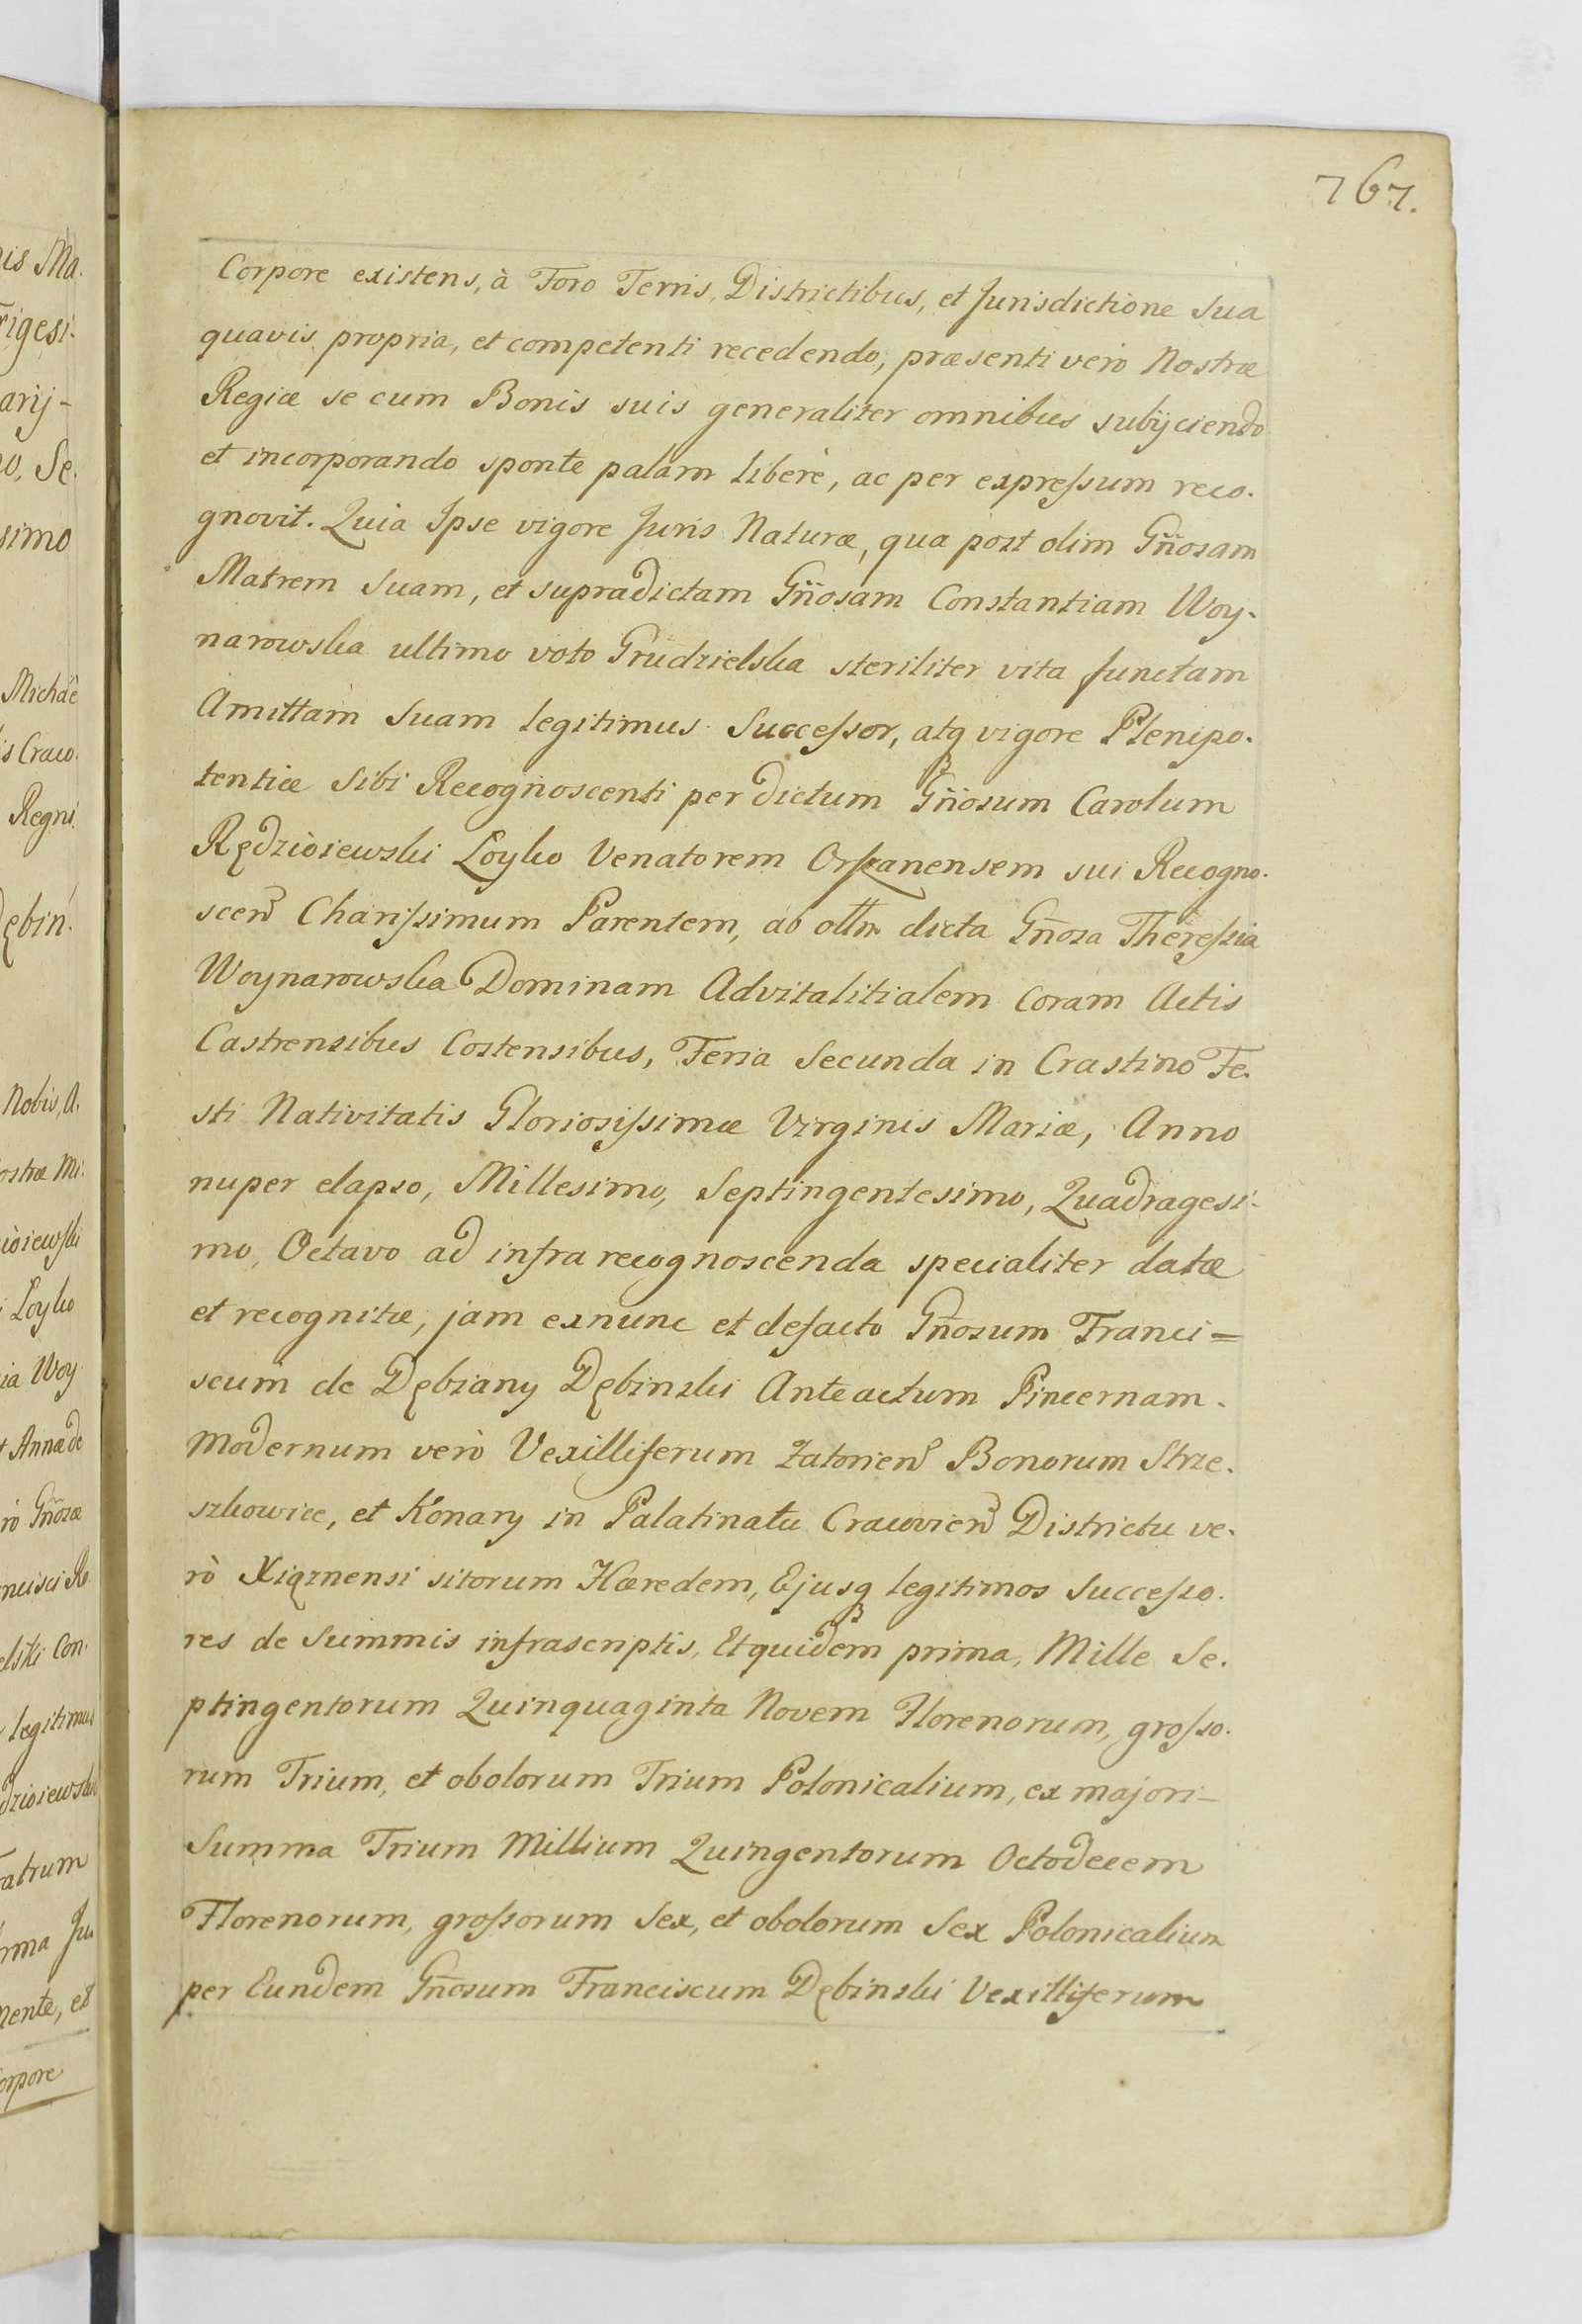 767.
Corpore existens, à Foro Terris, Districtibus, et Jurisdictione Sua
quavis propria, et competenti recedendo, præsenti verò Nostræ
Regiæ se cum Bonis suis generaliter omnibus subijciendo
et incorporando sponte palàm liberè, ac per expressum reco-
gnovit. Quia Ipse vigore Juris Naturæ, qua post olim Gñosam
Matrem Suam, et supradictam Gñosam Constantiam Woy-
narowska ultimo voto Grudzielska steriliter vita functam
Amittam Suam legitimus Successor, atq vigore Plenipo-
tentiæ Sibi Recognoscenti per dictum Gñosum Carolum
Rędziòiewski Loyko Venatorem Orszanensem sui Recogno-
scen Charissimum Parentem, ab olim dicta Gñosa Theressia
Woynarowska Dominam Advitalitialem Coram Actis
Castrensibus Costensibus, Feria Secunda in Crastino Fe-
sti Nativitatis Gloriosissimæ Virginis Mariæ, Anno
nuper elapso, Millesimo, Septingentesimo, Quadragesi-
mo, Octavo ad infra recognoscenda specialiter datæ
et recognitæ, jam exnunc et defacto Gñosum Franci=
scum de Dębiany Dębinski Anteactum Pincernam.
Modernum verò Vexilliferum Zatorien Bonorum Strze-
szkowice, et Konary in Palatinatu Cracovien Districtu ve-
rò Xiąznensi sitorum Hæredem, Ejusq legitimos Successo-
res de Summis infrascriptis, Et quidem prima, Mille Se-
ptingentorum Quinquaginta Novem Florenorum, grosso-
rum Trium, et obolorum Trium Polonicalium, ex majori-
Summa Trium Millium Quingentorum Octodecem
Florenorum, grossorum Sex, et obolorum Sex Polonicalium
per Eundem Gñosum Franciscum Dębinski Vexilliferum